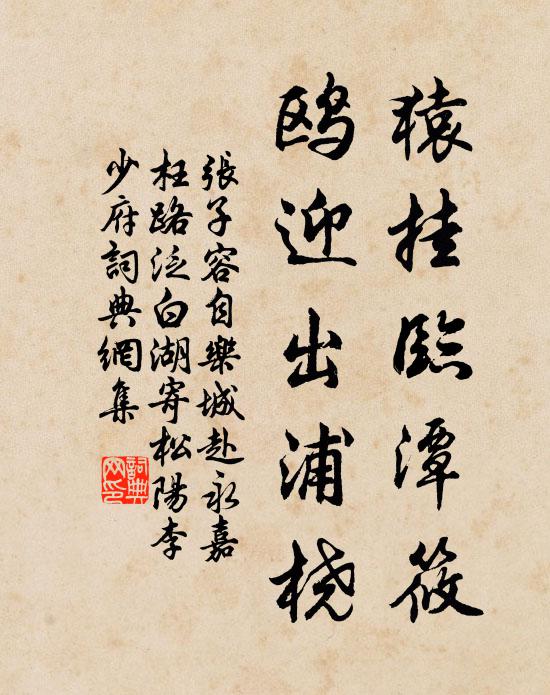 猿挂臨潭筱
鸥迎出浦桡
張子容自樂城赴永嘉
枉路泛白湖寄松陽李
少府詞典網集
詞典网印